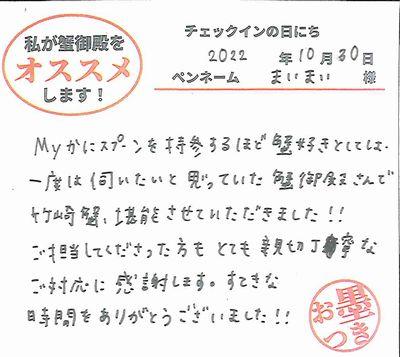 私が蟹御殿を
オススメ
します!
チェックインの日にち
2022 年 10 月 30 日
ペンネーム まいまい 様
Myかにスプーンを持参するほど蟹好きとしては、
一度は伺いたいと思っていた蟹御殿さんで
竹崎蟹、堪能させていただきました!!
ご担当してくださった方もとても親切丁寧な
ご対応に感謝します。すてきな
時間をありがとうございました!!
お墨つき